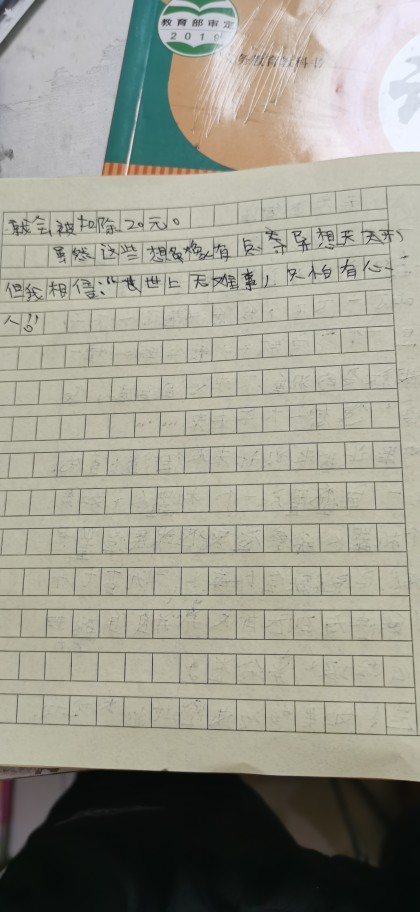 教育部审定
2019
义务教育教科书
就会被扣除20元。
虽然这些想象有点奇异想天开,
但我相信:“世上无难事,只怕有心
人!”